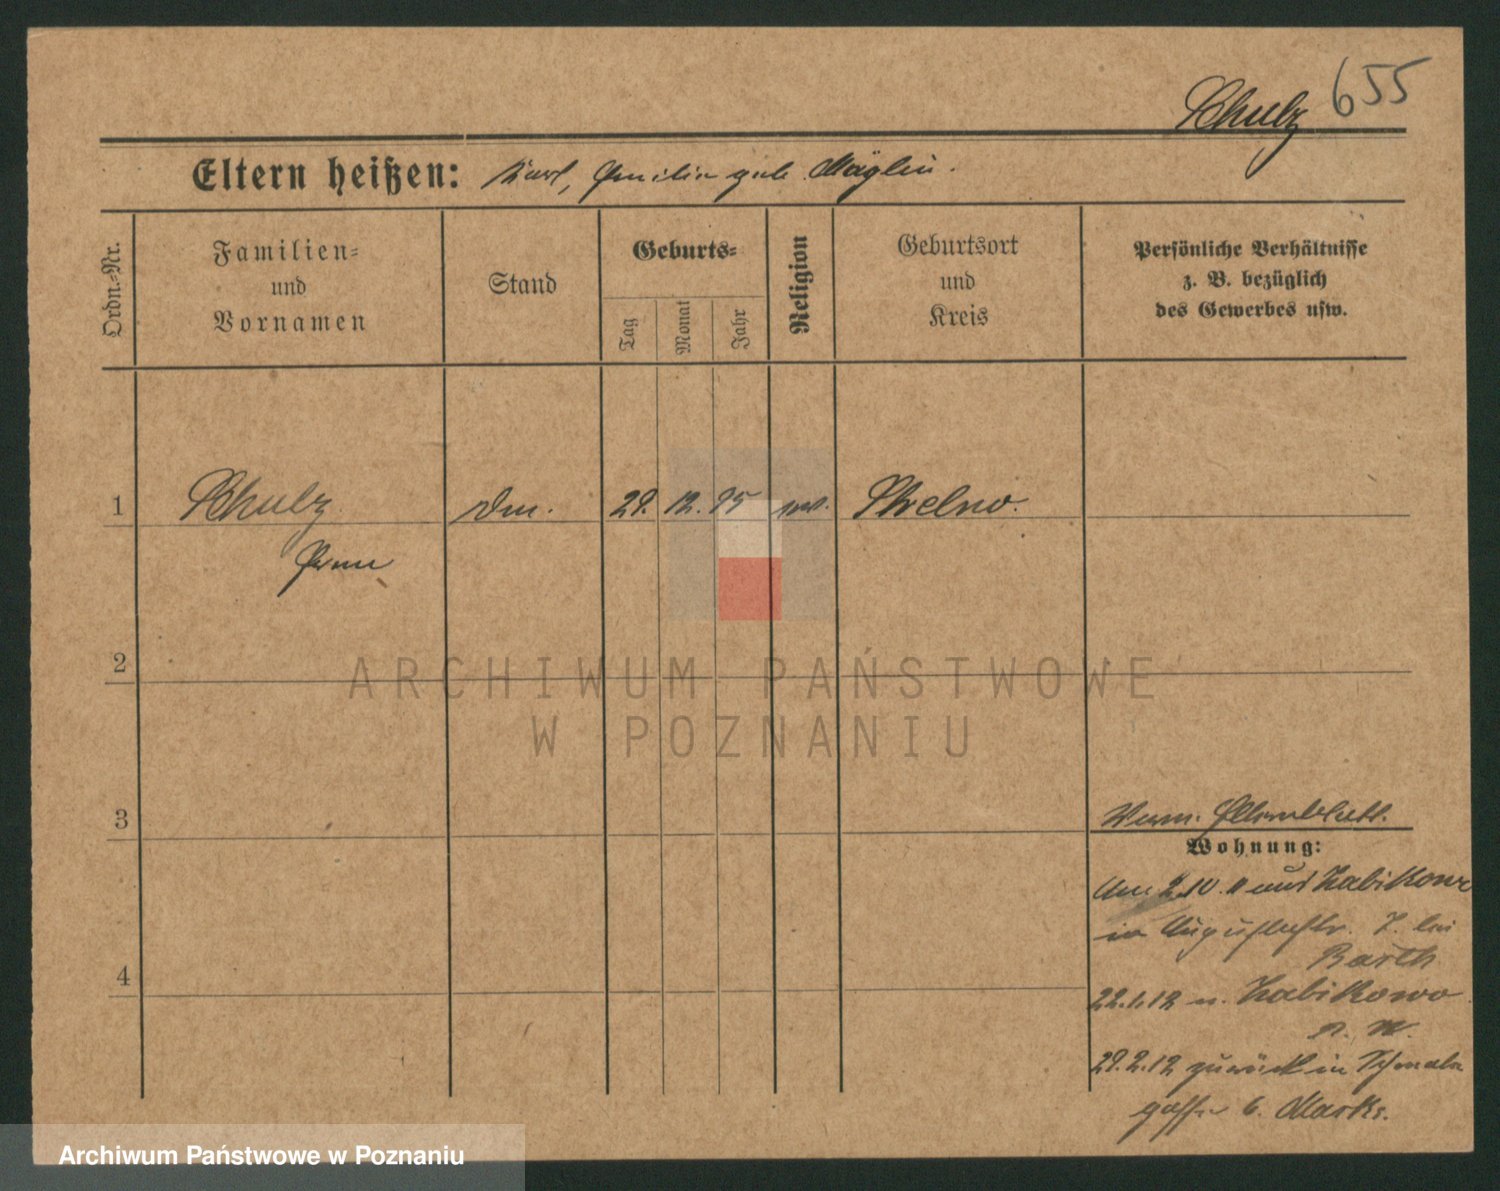 Schulz 655
Eltern heißen: Karl, Emilie geb. Mäglin.
Ordn.=Nr.
Familien=
und
Vornamen
Stand
Geburts=
Tag
Monat
Jahr
Religion
Geburtsort
und
Kreis
Persönliche Verhältnisse
z. B. bezüglich
des Gewerbes usw.
1 Schulz 29. 12. 95 Strelno.
Erna
2
3
4
Elternblatt.
Wohnung:
Am 2.10. 11 aus Zabikowo
in Augustastr. 7. bei
Barth
22.1.12 n. Zabikowo
29.2.12 zurück in Schmale
gasse 6. Marks.
ARCHIWUM PAŃSTWOWE
W POZNANIU
Archiwum Państwowe w Poznaniu